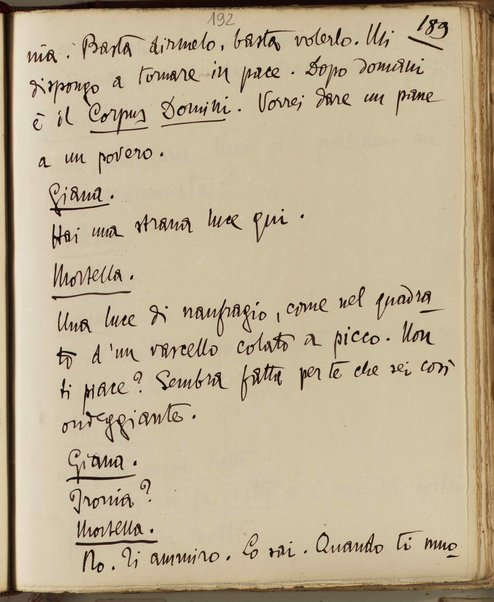 192
189
nia. Basta dirmelo, basta volerlo. Mi
dispongo a tornare in pace. Dopo domani
è il Corpus Domini. Vorrei dare un pane
a un povero.
Giana.
Hai una strana luce qui.
Mortella.
Una luce di naufragio, come nel quadra-
to d'un vascello colato a picco. Non
ti piace? Sembra fatta per te che sei così
ondeggiante.
Giana.
Ironia?
Mortella.
No. Ti ammiro. Lo sai. Quando ti muo-